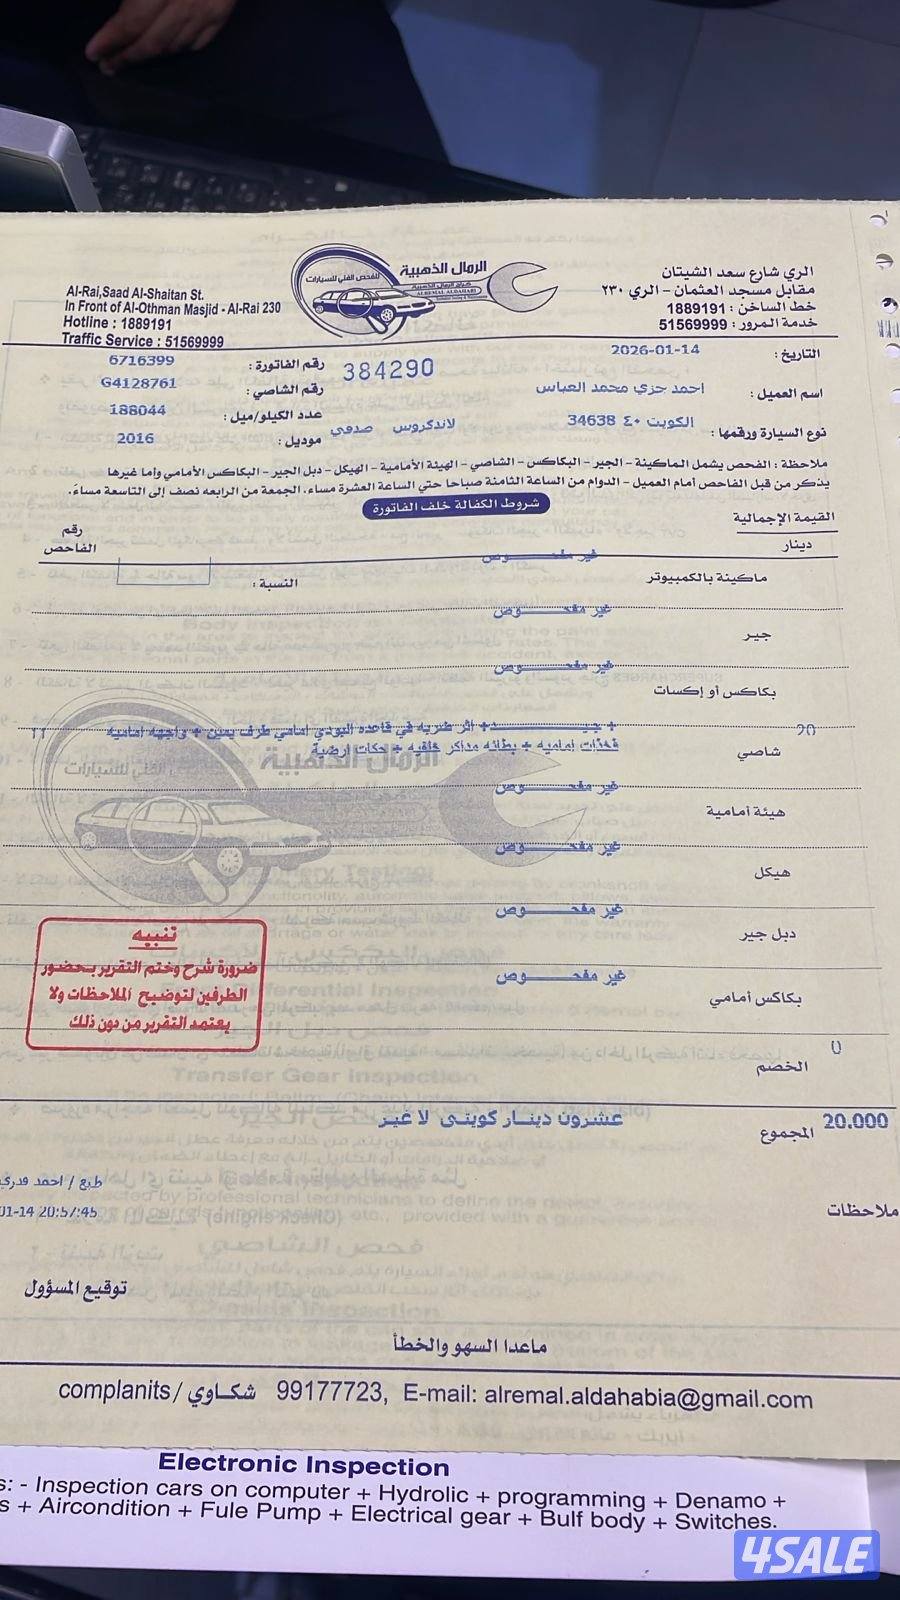 الرمال الذهبية
للفحص الفني للسيارات
كراج الرمال الذهبية
ALREMAL ALDAHABI
Al-Rai,Saad Al-Shaitan St.
In Front of Al-Othman Masjid - Al-Rai 230
Hotline : 1889191
Traffic Service : 51569999
الري شارع سعد الشيتان
مقابل مسجد العثمان - الري ٢٣٠
خط الساخن : 1889191
خدمة المرور : 51569999
التاريخ : 2026-01-14
384290
رقم الفاتورة : 6716399
اسم العميل : احمد جزي محمد العباس
رقم الشاصي : G4128761
نوع السيارة ورقمها : الكويت ٤٠ 34638
لاندكروس صدفي
عدد الكيلو/ميل : 188044
موديل : 2016
ملاحظة : الفحص يشمل الماكينة - الجير - البكاكس - الشاصي - الهيئة الأمامية - الهيكل - دبل الجير - البكاكس الأمامي وإما غيرها
يذكر من قبل الفاحص أمام العميل - الدوام من الساعة الثامنة صباحا حتي الساعة العشرة مساء، الجمعة من الرابعه نصف إلى التاسعة مساءً.
شروط الكفالة خلف الفاتورة
القيمة الإجمالية
دينار
رقم الفاحص
ماكينة بالكمبيوتر غير مفحـــوص النسبة :
جير غير مفحـــوص
بكاكس أو إكسات غير مفحـــوص
20 شاصي + جيـــــد + اثر ضربه في قاعده البودي امامي طرف يمين + واجهه اماميه 11
فخذات اماميه + بطانه مداكر خلفيه + حكات ارضية
هيئة أمامية غير مفحـــوص
هيكل غير مفحـــوص
دبل جير غير مفحـــوص
بكاكس أمامي غير مفحـــوص
تنبيه
ضرورة شرح وختم التقرير بحضور
الطرفين لتوضيح الملاحظات ولا
يعتمد التقرير من دون ذلك
0 الخصم
20.000 المجموع عشرون دينـار كويتى لا غير
ملاحظات
طبع / احمد قدري
01-14 20:57:45
توقيع المسؤول
ماعدا السهو والخطأ
complanits / شكـاوي 99177723, E-mail: alremal.aldahabia@gmail.com
Electronic Inspection
s: - Inspection cars on computer + Hydrolic + programming + Denamo +
s + Aircondition + Fule Pump + Electrical gear + Bulf body + Switches.
4SALE